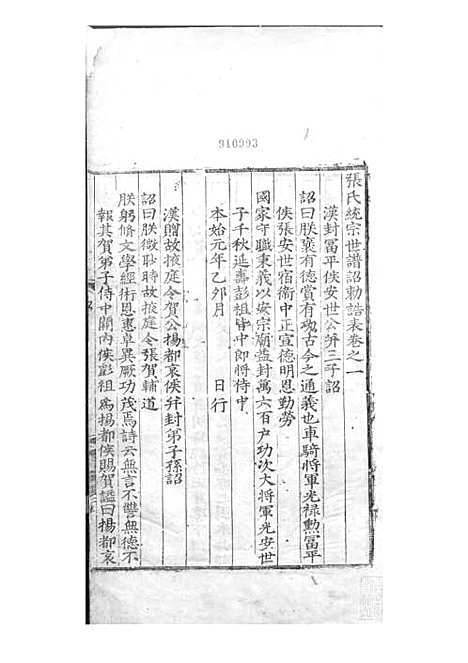 910993
張氏統宗世譜詔勅誥表卷之一
漢封冨平侯安世公并三子詔
詔曰朕襃有德賞有功古今之通義也車騎將軍光禄勲冨平
侯張安世宿衛中正宣德明恩勤勞
國家守職秉義以安宗廟益封萬六百户功次大將軍光安世
子千秋延壽彭祖皆中郎將侍中
本始元年乙夘月　日行
漢贈故掖庭令賀公揚都哀侯并封弟子孫詔
詔曰朕微眇時故掖庭令張賀輔道
朕躬脩文學經術恩惠卓異厥功茂焉詩云無言不讐無德不
報其賀弟子侍中關内侯彭祖為揚都侯賜賀謚曰揚都哀